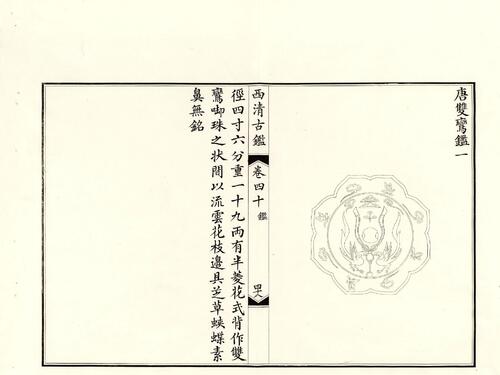 唐雙鸞鑑一
西清古鑑
卷四十
鑑
徑四寸六分重一十九兩有半菱花式背作雙
鸞啣珠之狀間以流雲花枝邊具芝草蛺蝶素
鼻無銘